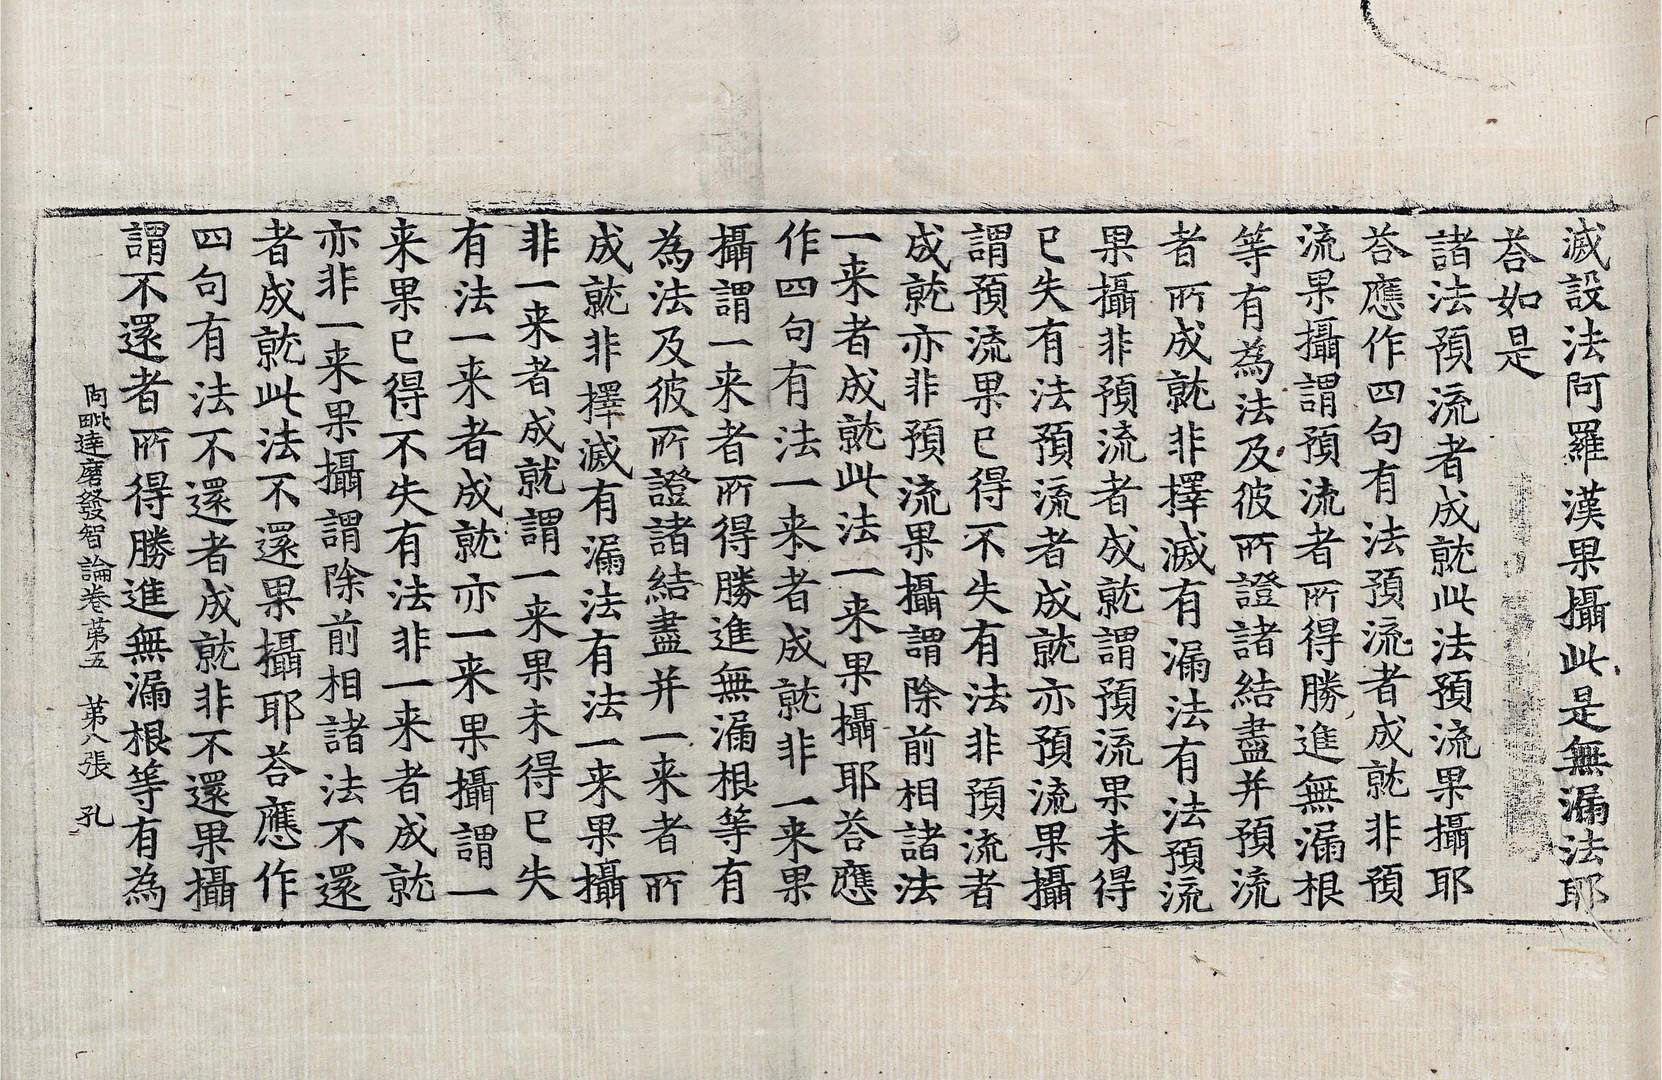 滅設法阿羅漢果攝此是無漏法耶
荅如是
諸法預流者成就此法預流果攝耶
荅應作四句有法預流者成就非預
流果攝謂預流者所得勝進無漏根
等有為法及彼所證諸結盡并預流
者所成就非擇滅有漏法有法預流
果攝非預流者成就謂預流果未得
已失有法預流者成就亦預流果攝
謂預流果已得不失有法非預流者
成就亦非預流果攝謂除前相諸法
一来者成就此法一来果攝耶荅應
作四句有法一来者成就非一来果
攝謂一来者所得勝進無漏根等有
為法及彼所證諸結盡并一来者所
成就非擇滅有漏法有法一来果攝
非一来者成就謂一来果未得已失
有法一来者成就亦一来果攝謂一
来果已得不失有法非一来者成就
亦非一来果攝謂除前相諸法不還
者成就此法不還果攝耶荅應作
四句有法不還者成就非不還果攝
謂不還者所得勝進無漏根等有為
阿毗達磨發智論卷第五　第八張　孔